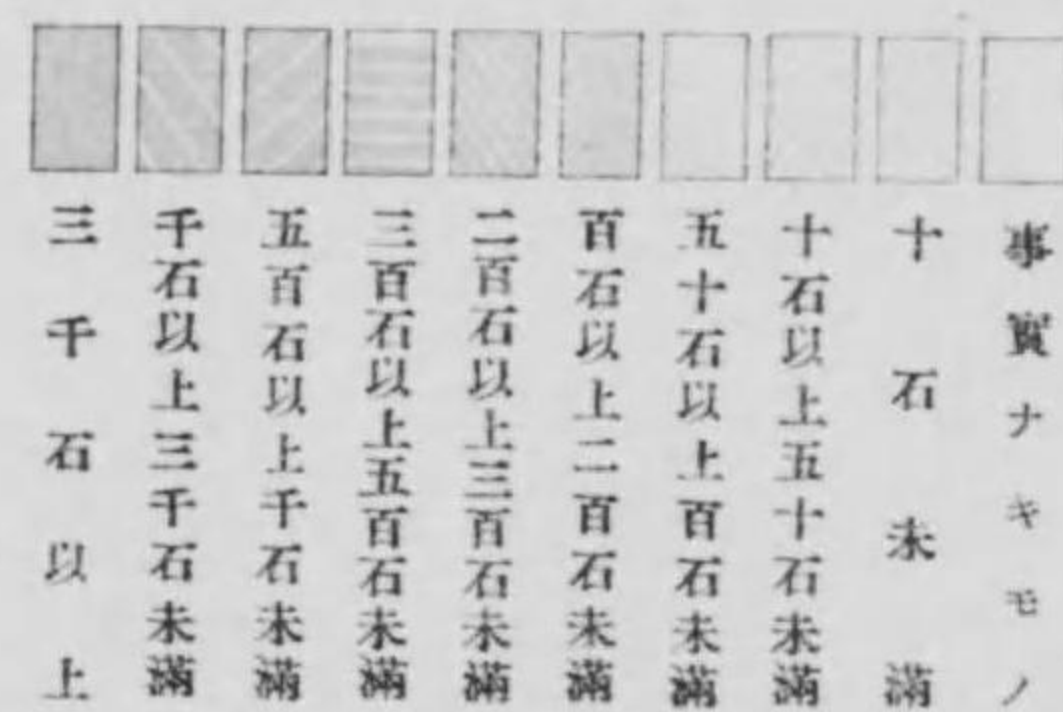 事實ナキモノ
十石未滿
十石以上五十石未滿
五十石以上百石未滿
百石以上二百石未滿
二百石以上三百石未滿
三百石以上五百石未滿
五百石以上千石未滿
千石以上三千石未滿
三千石以上